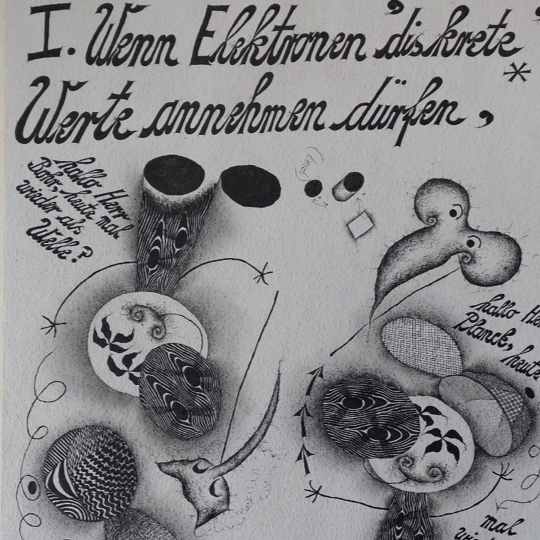 I. Wenn Elektronen 'diskrete'
*
Werte annehmen dürfen,
hallo Herr
Bohr, heute mal
wieder als
Welle?
hallo
Planck, heute
mal